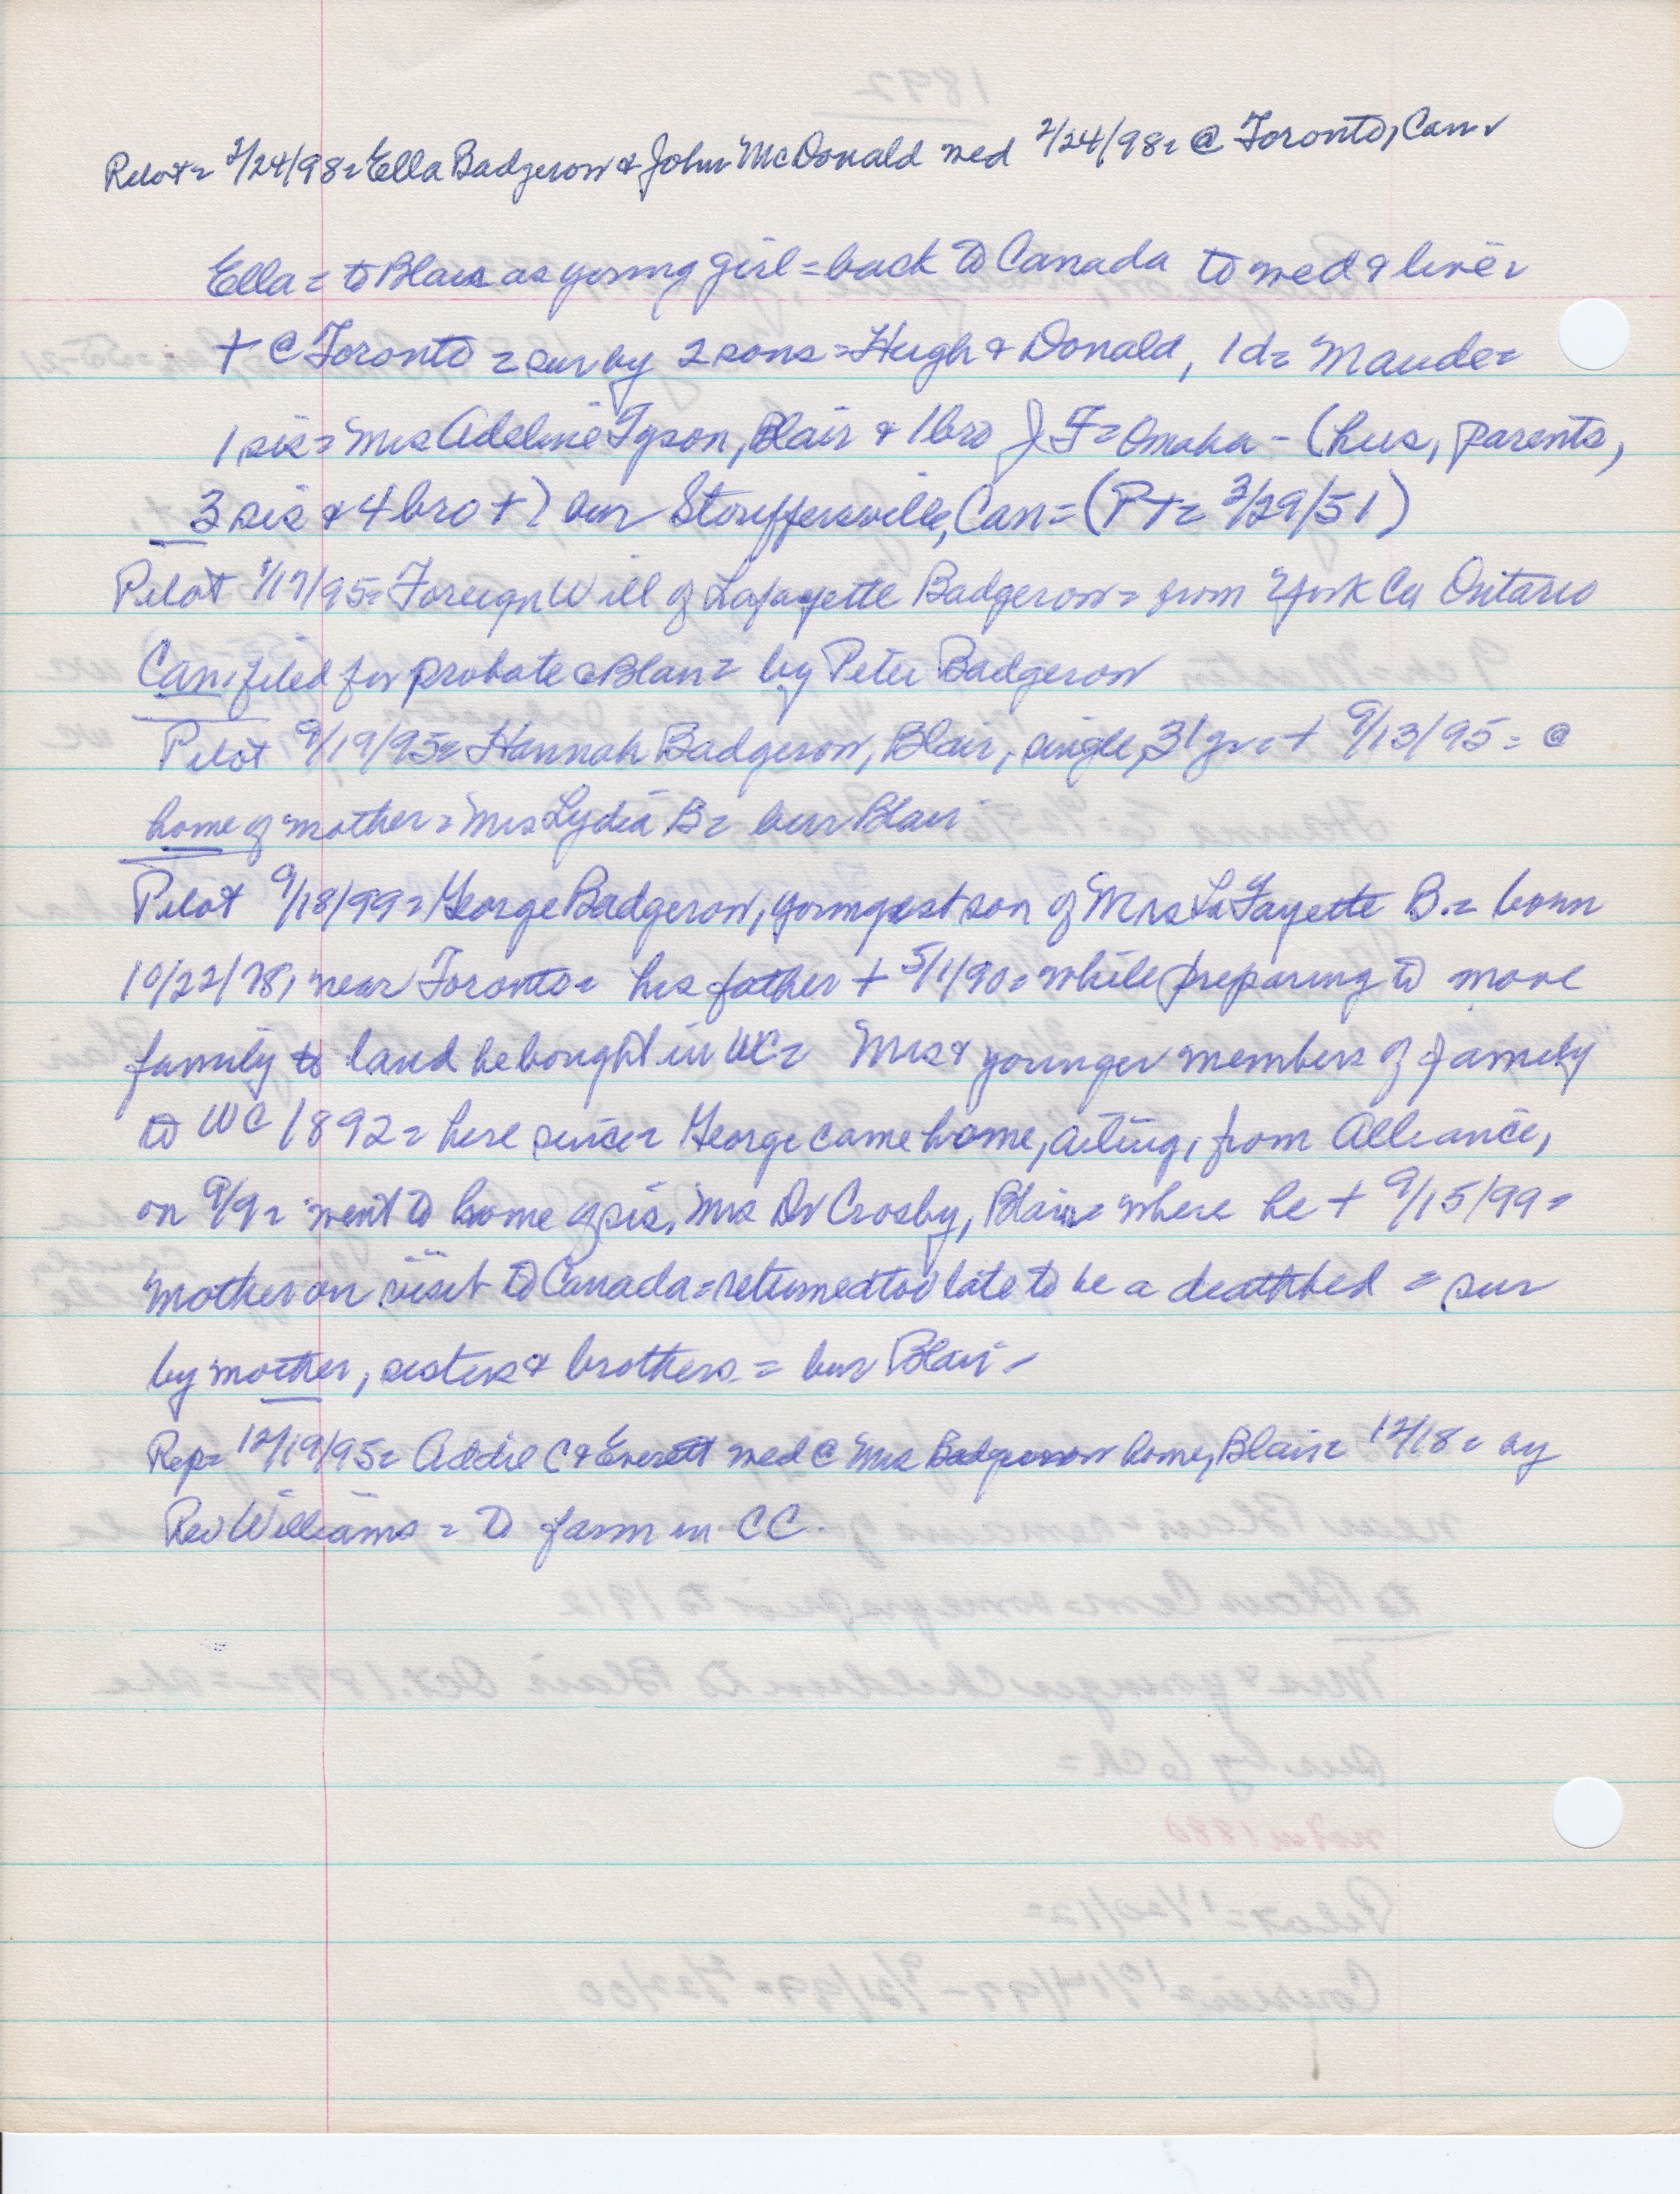 Pilot = 2/24/98 = Ella Badgerow & John McDonald wed 2/24/98 = @ Toronto, Can ✓
Ella = to Blair as young girl = back to Canada to wed & live =
+ @ Toronto = sur by 2 sons = Hugh & Donald, 1 d = Maude =
1 sis = Mrs Adeline Tyson, Blair & 1 bro J F = Omaha - (hus, parents,
3 sis & 4 bro +) bur Stouffersville, Can = (PT = 3/29/51)
Pilot 1/17/95 = Foreign Will of Lafayette Badgerow = from York Co Ontario
Can. filed for probate @ Blair = by Peter Badgerow
Pilot 9/19/95 = Hannah Badgerow, Blair, single, 31 yr = + 9/13/95 = @
home of mother = Mrs Lydia B = bur Blair
Pilot 9/18/99 = George Badgerow, youngest son of Mrs LaFayette B. = born
10/22/78, near Toronto = his father + 5/1/90 = while preparing to move
family to land he bought in WC = Mrs & younger members of family
to WC 1892 = here since = George came home, ailing, from Alliance,
on 9/9 = went to home of sis, Mrs Dr Crosby, Blair = where he + 9/15/99 =
Mother on visit to Canada = returned too late to be a deathbed = sur
by mother, sisters & brothers = bur Blair -
Rep = 12/19/95 = Addie C & Everett wed @ Mrs Badgerow home, Blair = 12/18 = by
Rev Williams = to farm in CC.